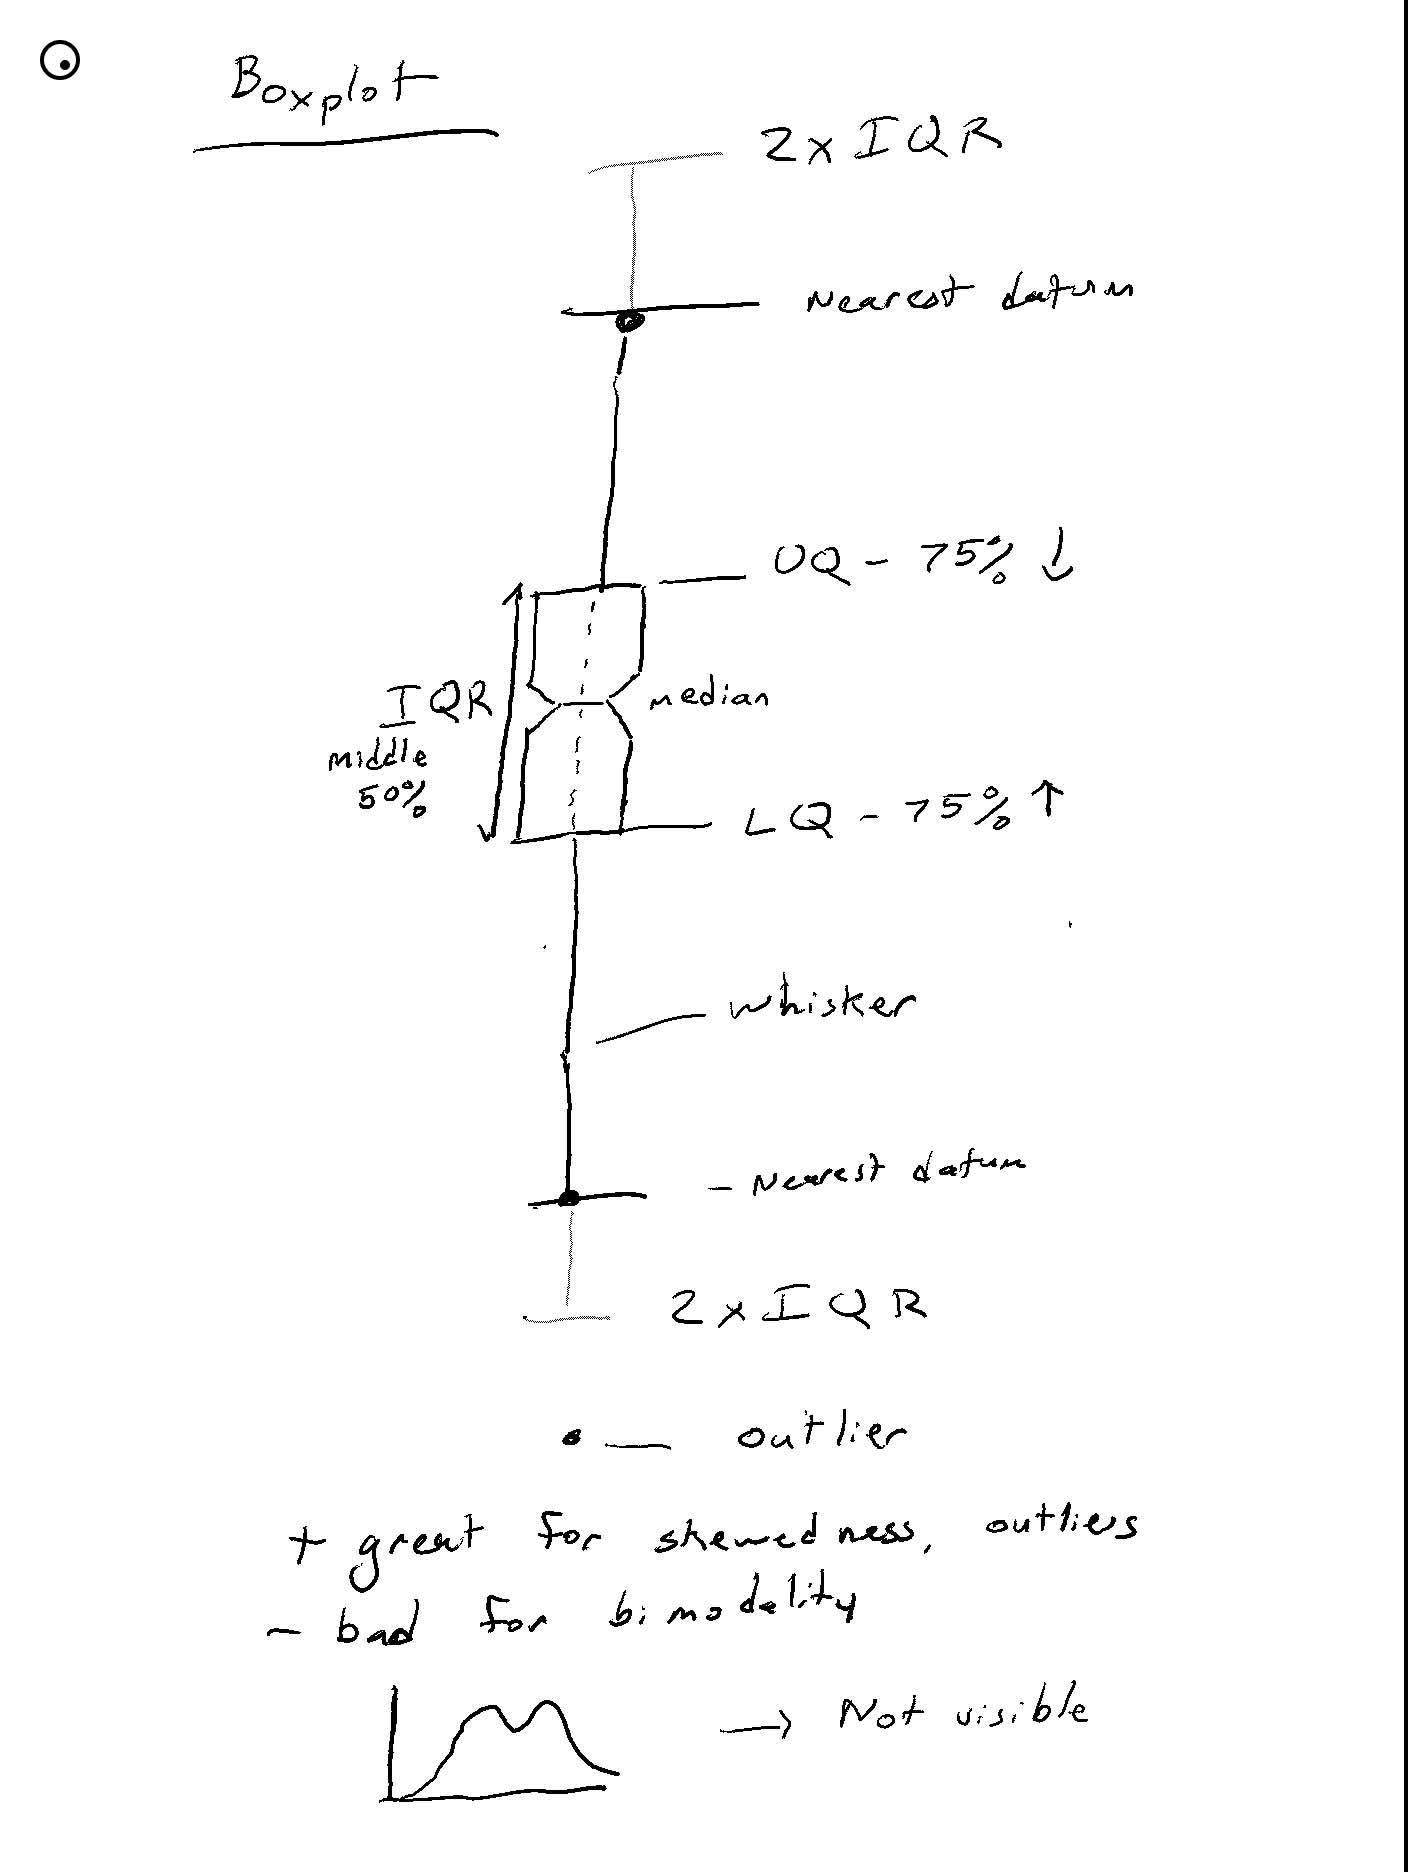 Boxplot
2 x IQR
Nearest datum
UQ - 75% ↓
IQR
median
middle
50%
LQ - 75% ↑
whisker
- Nearest datum
2 x IQR
• — outlier
+ great for skewedness, outliers
- bad for bimodality
→ Not visible